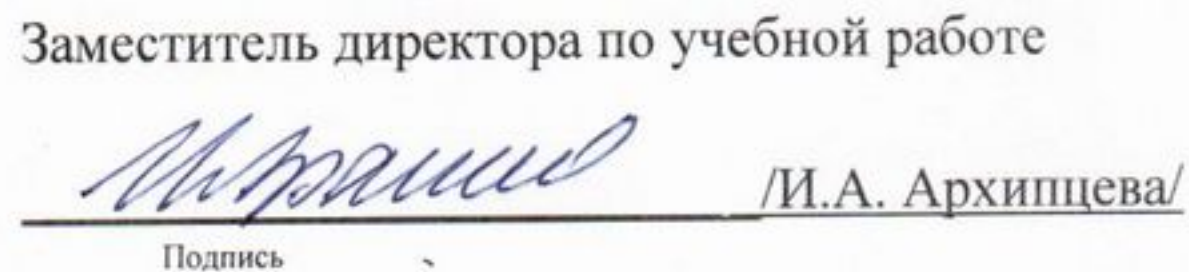 Заместитель директора по учебной работе
/И.А. Архипцева/
Подпись